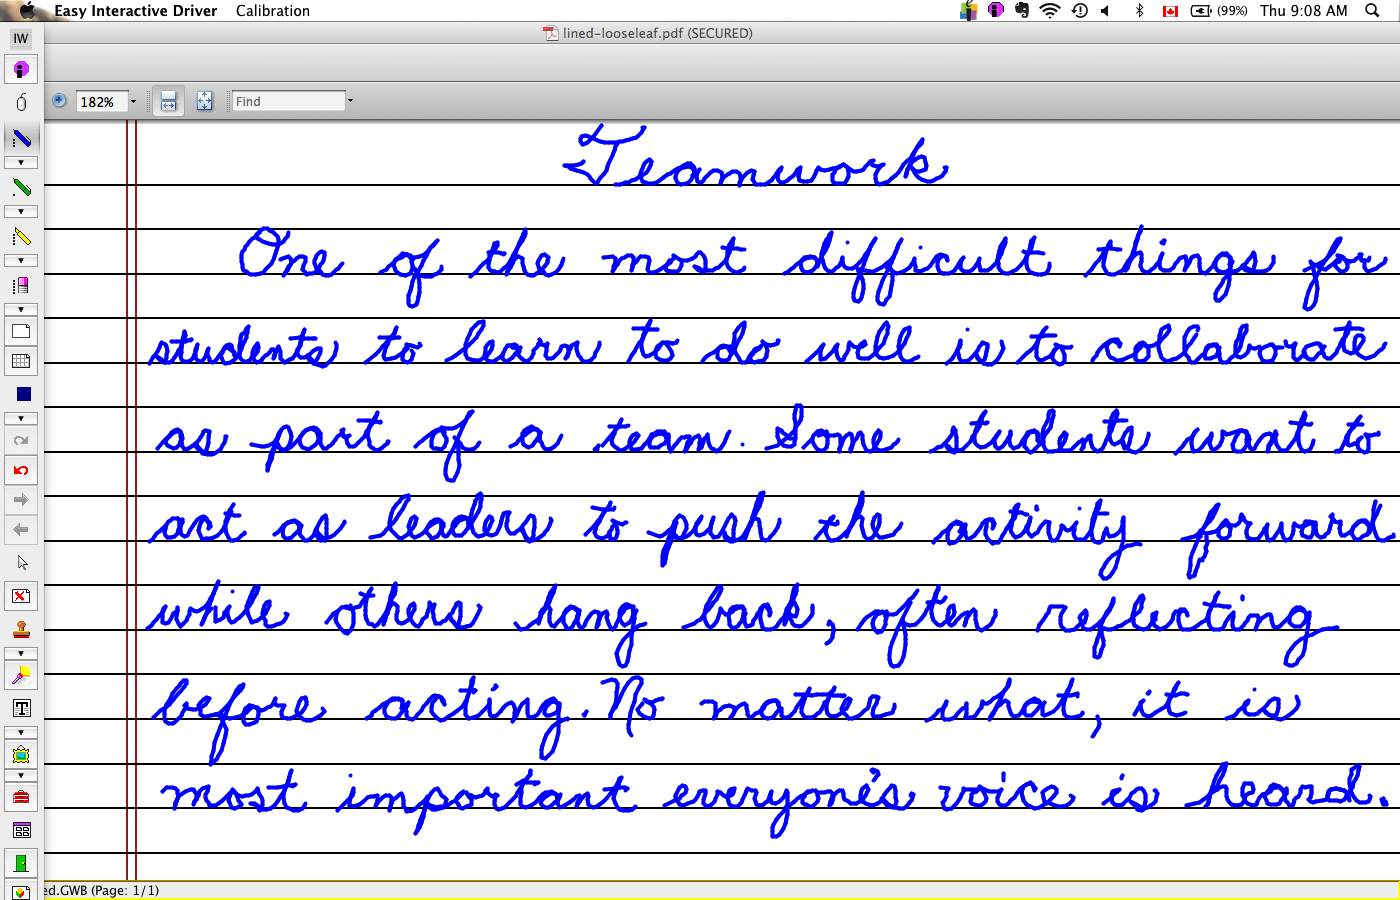 Easy Interactive Driver Calibration (99%) Thu 9:08 AM
IW lined-looseleaf.pdf (SECURED)
182% Find
Teamwork
One of the most difficult things for
students to learn to do well is to collaborate
as part of a team. Some students want to
act as leaders to push the activity forward
while others hang back, often reflecting
before acting. No matter what, it is
most important everyone's voice is heard.
T
ed.GWB (Page: 1/1)